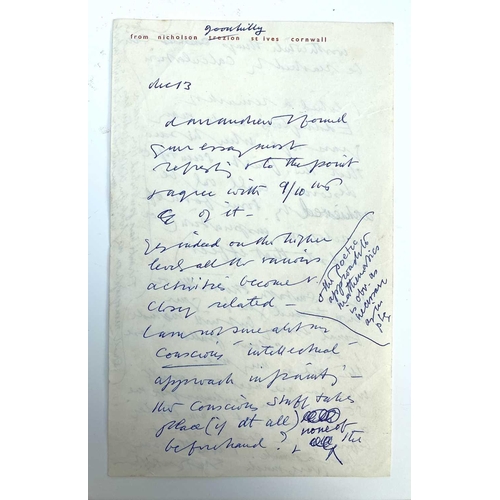 goonhilly
from nicholson trezion st ives cornwall
dec 13
dear andrew I found
your essay most
refreshing & to the point
& agree with 9/10 ths
of it —
Yes indeed on the higher
levels all the various
activities become v
closely related —
I am not sure abt any
conscious 'intellectual'
approach in painting —
this conscious stuff takes
place (if at all)
beforehand? & none of the
& the poetic
approach to
mathematics
is obv. as
necessary
as in